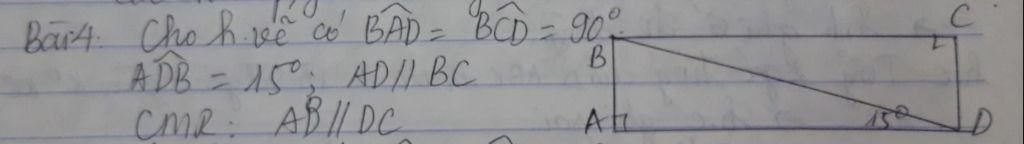 Bài 4: Cho h.vẽ có BAD = BCD = 90°.
ADB = 15°; AD // BC
CMR: AB // DC
B
C
A
15°
D